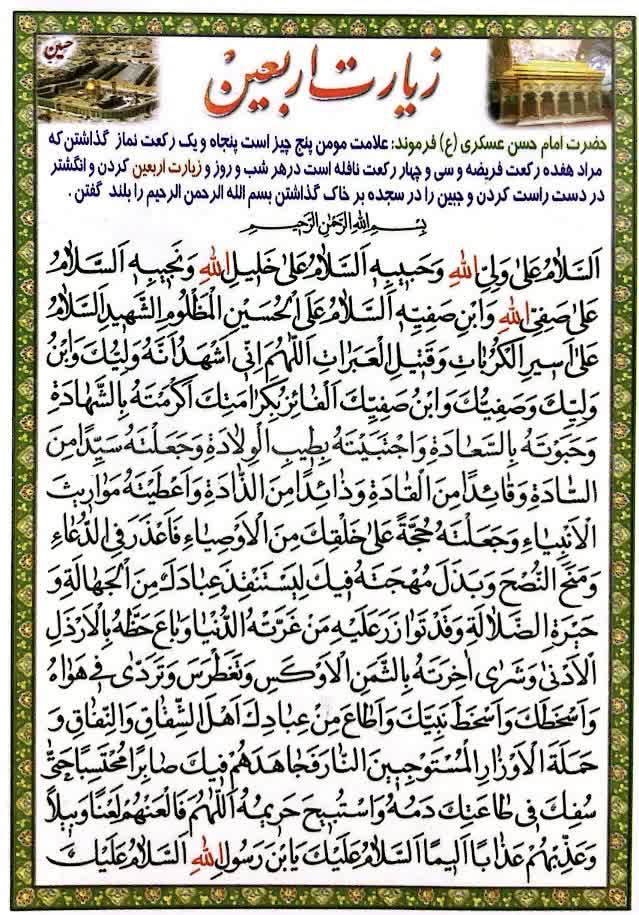 حسین
زیارت اربعین
حضرت امام حسن عسکری (ع) فرموند: علامت مومن پنج چیز است پنجاه و یک رکعت نماز گذاشتن که
مراد هفده رکعت فریضه و سی و چهار رکعت نافله است درهر شب و روز و زیارت اربعین کردن و انگشتر
در دست راست کردن و جبین را در سجده بر خاک گذاشتن بسم الله الرحمن الرحیم را بلند گفتن .
بِسْمِ اللهِ الرَّحْمٰنِ الرَّحيمِ
اَلسَّلامُ عَلىٰ وَلِيِّ اللهِ وَحَبيبِهِ اَلسَّلامُ عَلىٰ خَليلِ اللهِ وَنَجيبِهِ اَلسَّلامُ
عَلىٰ صَفِيِّ اللهِ وَابْنِ صَفِيِّهِ اَلسَّلامُ عَلَى الْحُسَيْنِ الْمَظْلُومِ الشَّهيدِ اَلسَّلامُ
عَلىٰ اَسيرِ الْكُرُباتِ وَقَتيلِ الْعَبَراتِ اَللّٰهُمَّ اِنّي اَشْهَدُ اَنَّهُ وَلِيُّكَ وَابْنُ
وَلِيِّكَ وَصَفِيُّكَ وَابْنُ صَفِيِّكَ الْفائِزُ بِكَرامَتِكَ اَكْرَمْتَهُ بِالشَّهادَةِ
وَحَبَوْتَهُ بِالسَّعادَةِ وَاجْتَبَيْتَهُ بِطيبِ الْوِلادَةِ وَجَعَلْتَهُ سَيِّدًا مِنَ
السّادَةِ وَقائِدًا مِنَ الْقادَةِ وَذائِدًا مِنَ الذّادَةِ وَاَعْطَيْتَهُ مَواريثَ
الْاَنْبِياءِ وَجَعَلْتَهُ حُجَّةً عَلىٰ خَلْقِكَ مِنَ الْاَوْصِياءِ فَاَعْذَرَ فِي الدُّعاءِ
وَمَنَحَ النُّصْحَ وَبَذَلَ مُهْجَتَهُ فيكَ لِيَسْتَنْقِذَ عِبادَكَ مِنَ الْجَهالَةِ وَ
حَيْرَةِ الضَّلالَةِ وَقَدْ تَوازَرَ عَلَيْهِ مَنْ غَرَّتْهُ الدُّنْيا وَباعَ حَظَّهُ بِالْاَرْذَلِ
الْاَدْنىٰ وَشَرىٰ اٰخِرَتَهُ بِالثَّمَنِ الْاَوْكَسِ وَتَغَطْرَسَ وَتَرَدّىٰ في هَواهُ
وَاَسْخَطَكَ وَاَسْخَطَ نَبِيَّكَ وَاَطاعَ مِنْ عِبادِكَ اَهْلَ الشِّقاقِ وَالنِّفاقِ وَ
حَمَلَةَ الْاَوْزارِ الْمُسْتَوْجِبينَ النّارَ فَجاهَدَهُمْ فيكَ صابِرًا مُحْتَسِبًا حَتّىٰ
سُفِكَ في طاعَتِكَ دَمُهُ وَاسْتُبيحَ حَريمُهُ اَللّٰهُمَّ فَالْعَنْهُمْ لَعْنًا وَبيلًا
وَعَذِّبْهُمْ عَذابًا اَليمًا اَلسَّلامُ عَلَيْكَ يَابْنَ رَسُولِ اللهِ اَلسَّلامُ عَلَيْكَ